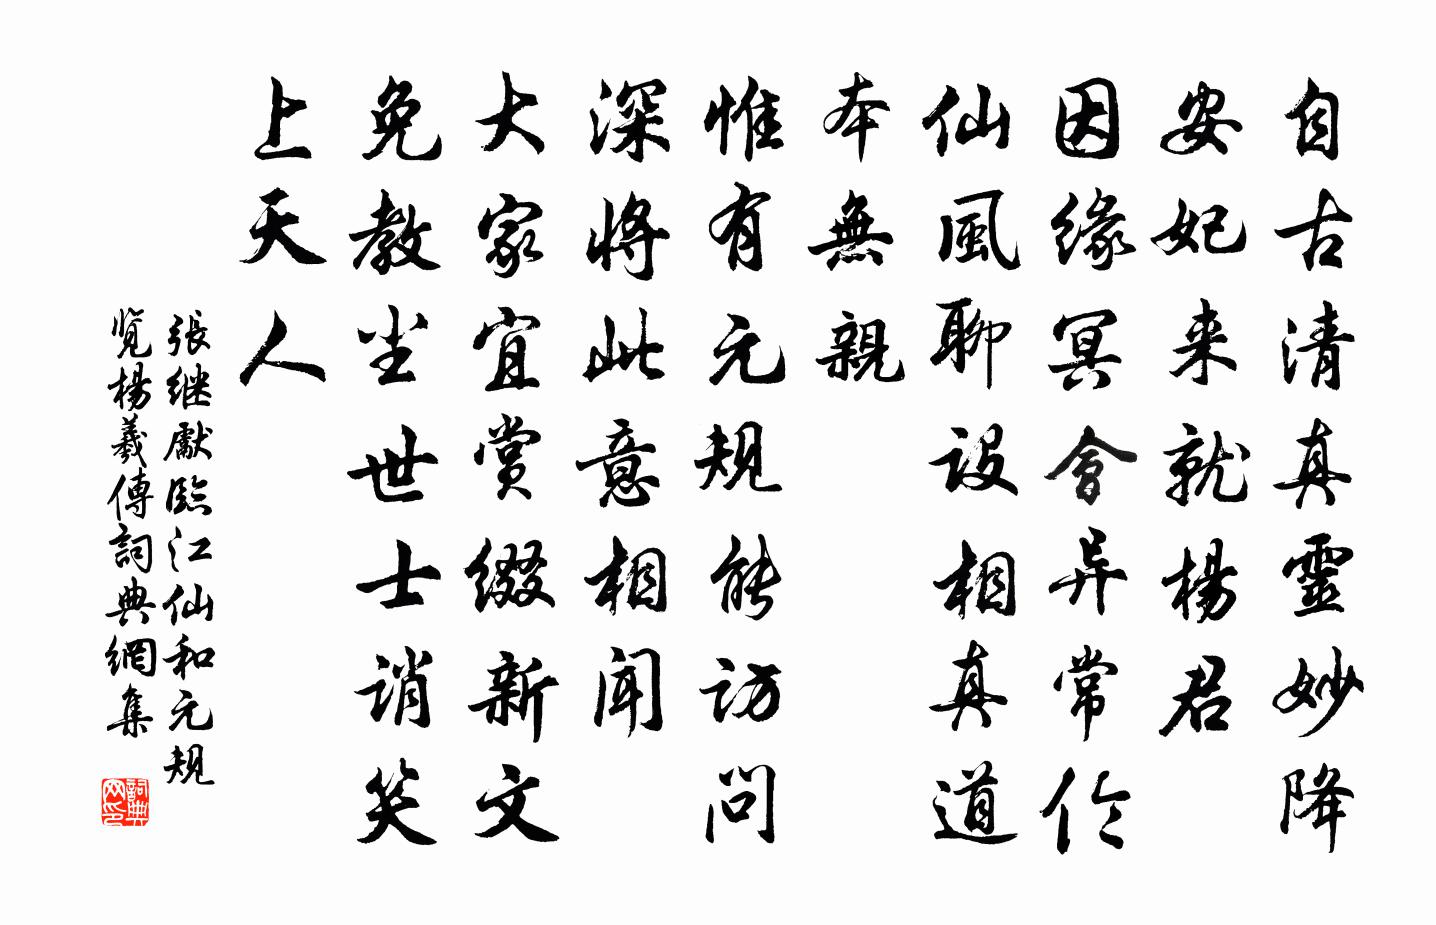 自古清真靈妙降
安妃来就楊君
因緣冥會异常伦
仙風聊設相真道
本無親
惟有元規能訪問
深將此意相闻
大家宜赏缀新文
免教尘世士誚笑
上天人
張継獻臨江仙和元規
览楊羲傳詞典網集
詞典网印